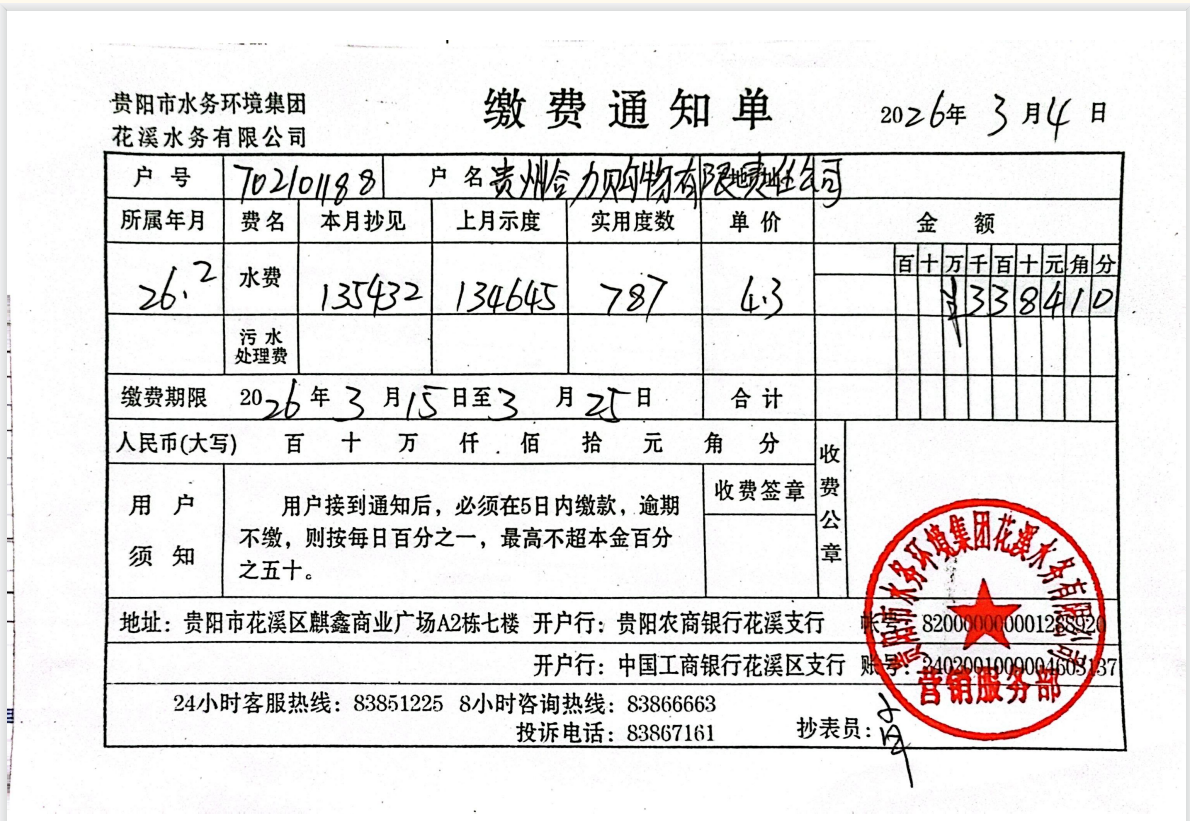 贵阳市水务环境集团
花溪水务有限公司
缴费通知单
2026年 3月4日
户号 70210188 户名 贵州合力购物有限责任公司
所属年月 费名 本月抄见 上月示度 实用度数 单价 金额
百 十 万 千 百 十 元 角 分
26.2 水费 135432 134645 787 4.3 ¥ 3 3 8 4 1 0
污水
处理费
缴费期限 2026年3月15日至3月25日 合计
人民币(大写) 百 十 万 仟 佰 拾 元 角 分
收费公章
用户须知
用户接到通知后，必须在5日内缴款，逾期
不缴，则按每日百分之一，最高不超本金百分
之五十。
收费签章
贵阳市水务环境集团花溪水务有限公司
营销服务部
地址：贵阳市花溪区麒鑫商业广场A2栋七楼 开户行：贵阳农商银行花溪支行
开户行：中国工商银行花溪区支行 账号：
24小时客服热线：83851225 8小时咨询热线：83866663
投诉电话：83867161 抄表员：